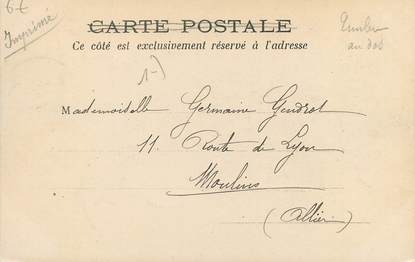 6€
Imprimé
CARTE POSTALE
Ce côté est exclusivement réservé à l'adresse
au dos
1-)
Mademoiselle Germaine Gendrot
11. Route de Lyon
Moulins
(Allier)